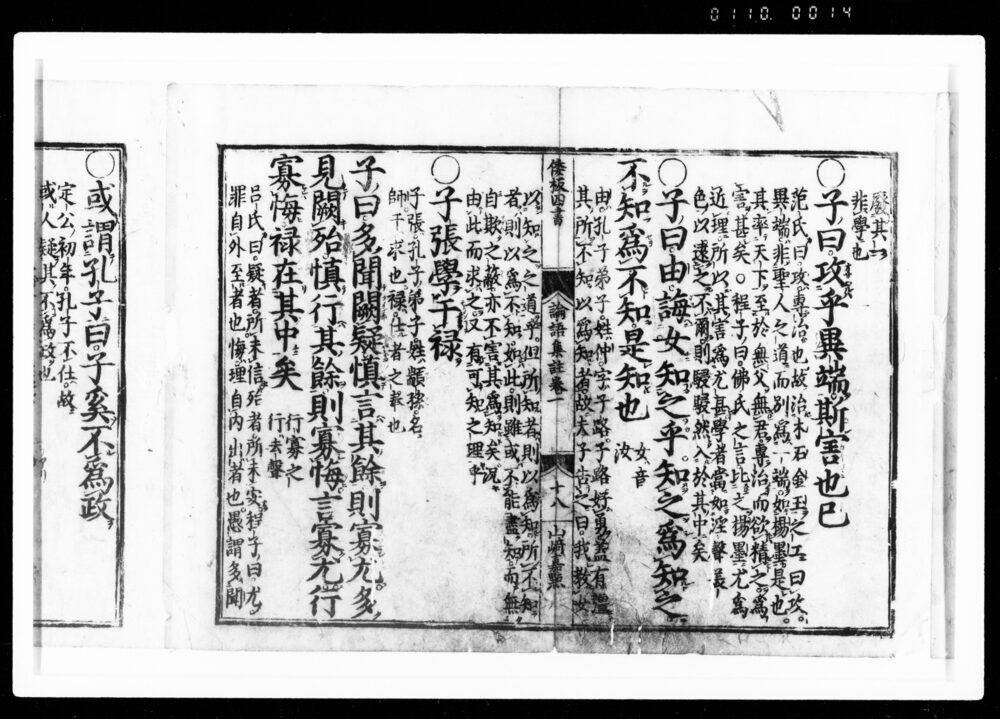 0110. 0014
廢其一
非學也
○子曰攻乎異端斯害也已
范氏曰攻專治也故治木石金玉之工曰攻
異端非聖人之道而別爲一端如揚墨是也
其率天下至於無父無君專治而欲精之爲
害甚矣○程子曰佛氏之言比之揚墨尤爲
近理所以其害爲尤甚學者當如淫聲美
色以遠之不爾則駸駸然入於其中矣
○子曰由誨女知之乎知之爲知之
不知爲不知是知也 女音汝
由孔子弟子姓仲字子路子路好勇蓋有強
其所不知以爲知者故夫子告之曰我教女
倭板四書 論語集註卷一 十八 山崎嘉點
以知之之道乎但所知者則以爲知所不知
者則以爲不知如此則雖或不能盡知而無
自欺之蔽亦不害其爲知矣況
由此而求之又有可知之理乎
○子張學干禄
子張孔子弟子姓顓孫名
師干求也禄仕者之奉也
子曰多聞闕疑慎言其餘則寡尤多
見闕殆慎行其餘則寡悔言寡尤行
寡悔禄在其中矣 行寡之行去聲
呂氏曰疑者所未信殆者所未安程子曰尤
罪自外至者也悔理自内出者也愚謂多聞
○或謂孔子曰子奚不爲政
定公初年孔子不仕故
或人疑其不爲政也